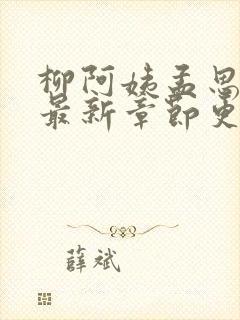 柳阿姨孟思
最新章节更
薛斌